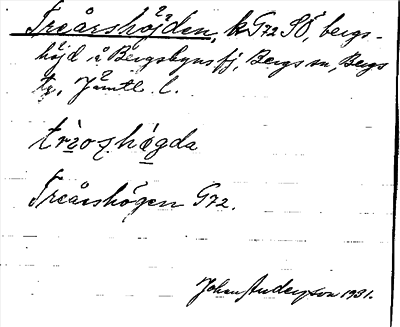 Treårshöjden, k G72 SÖ, bergs-
höjd å Bergsbyns fj, Bergs sn, Bergs
tg, Jämtl. l.
trìoʂhø̀gda
Treårshögen G72.
Johan Anderzon 1931.